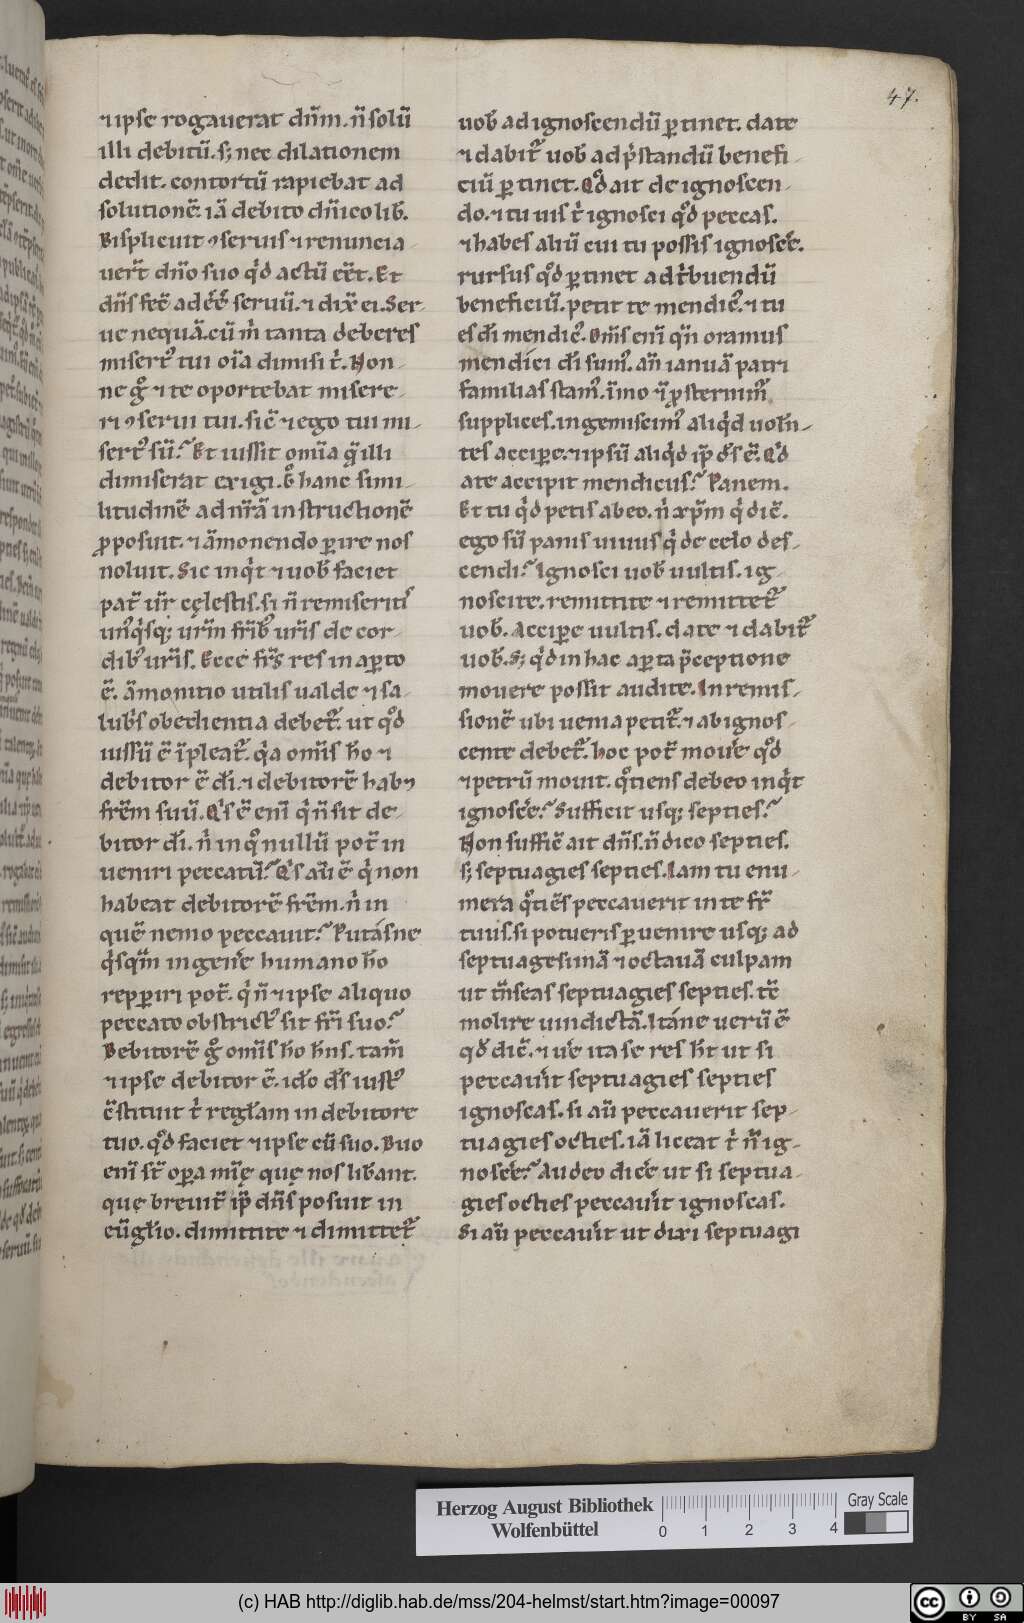 47.
⁊ ipse rogauerat dn̄m. n̄ solū
illi debitū. s; nec dilationem
dedit. contortū rapiebat ad
solutionē. iā debito dn̄ico lib̄.
Displicuit ꝯseruis ⁊ renuncia-
uer̄t dn̄o suo qͥd actū eēt. Et
dn̄s fec̄ adc̄c̄ seruū. ⁊ dix̄ ei. Ser-
ue nequā. cū m̄ tanta deberes
misertꝰ tui oīa dimisi tͥ. Non-
ne gͦ ⁊ te oportebat misere-
ri ꝯserui tui. sic̄ ⁊ ego tui mi-
sertꝰ sū? Et iussit omīa q̄ illi
dimiserat exigi. gͦ hanc simi-
litudinē ad nr̄ā instructionē
ꝓposuit. ⁊ āmonendo ꝑire nos
noluit. Sic inqͥt ⁊ uob̄ faciet
pat̄ ur̄ cęlestis. si n̄ remiseritꝭ
unꝰqͥsq; ur̄m frībꝰ ur̄is de cor-
dibꝰ ur̄is. Ecce fr̄s res in aꝑto
ē. āmonitio utilis ualde ⁊ sa-
lubͥs obedientia debet̄. ut qͦd
iussū ē īpleat̄. qͥa omīs h̄o ⁊
debitor ē dī. ⁊ debitorē habꝫ
fr̄em suū. Qͥs ē enī qͥ n̄ sit de-
bitor dī. nͥ in qͦ nullū pot̄ in
ueniri peccatū? Qͥs aū ē qͥ non
habeat debitorē fr̄em. nͥ in
quē nemo peccauit? Putásne
qͥsqm̄ in genͤe humano h̄o
repꝑiri pot̄. qͥ n̄ ⁊ ipse aliquo
peccato obstrictꝰ sit fr̄i suo?
Debitorē gͦ omīs h̄o h̄ns. tam̄
⁊ ipse debitor ē. id̄o d̄s iustꝰ
c̄stituit tͥ regłam in debitore
tuo. qͦd faciet ⁊ ipse cū suo. Duo
enī st̄ oꝑa mīę quę nos lib̄ant.
quę breuit̄ ip̄ dn̄s posuit in
eūgłio. dimittite ⁊ dimittet̄
uob̄ ad ignoscendū ꝑtinet. date
⁊ dabit̄ uob̄ ad pͥstandū benefi-
ciū ꝑtinet. Qͦd ait de ignoscen-
do. ⁊ tu uis tͥ ignosci qͦd peccas.
⁊ habes aliū cui tu possis ignoscͤe.
rursus qͦd ꝑtinet ad tͥbuendū
beneficiū. petit te mendicꝰ. ⁊ tu
es dī mendicꝰ. Om̄s enī qn̄ oramus
mendici dī sumꝰ. an̄ ianuā patri
familias stamꝰ. īmo ⁊ ꝓsternim̄
supplices. ingemiscimꝰ aliqͥd uolen̄-
tes accipe. ⁊ ipsū aliqͥd ip̄ d̄s ē. Qͥd
a te accipit mendicus? Panem.
Et tu qͥd petis a deo. nͥ xp̄m qͥ dic̄.
ego sū panis uiuus qͥ de celo des-
cendi? Ignosci uob̄ uultis. ig-
noscite. remittite ⁊ remittet̄
uob̄. Accipe uultis. date ⁊ dabit̄
uob̄. S; qͥd in hac aꝑta p̄ceptione
mouere possit audite. In remis-
sionē ubi uenia petit̄. ⁊ ab ignos-
cente debet̄. hoc pot̄ mouͤe qͦd
⁊ petrū mouit. qͦtiens debeo inqͥt
ignoscͤe? Sufficit usq; septies?
Non suffic̄ ait dn̄s. n̄ dico septies.
s; septuagies septies. Iam tu enu-
mera qͦtiēs peccauerit in te fr̄
tuus. si potueris ꝑuenire usq; ad
septuagesimā ⁊ octauā culpam
ut tn̄seas septuagies septies. tc̄
molire uindictā. Itáne uerū ē
qͦd dic̄. ⁊ uͤe ita se res h̄t ut si
peccauͥit septuagies septies
ignoscas. si aū peccauerit sep-
tuagies octies. iā liceat tͥ n̄ ig-
noscͤe? Audeo dicͤe ut si septua-
gies octies peccauͥit ignoscas.
Si aū peccauͥit ut dixi septuagi
Herzog August Bibliothek
Wolfenbüttel
0 1 2 3 4
Gray Scale
(c) HAB http://diglib.hab.de/mss/204-helmst/start.htm?image=00097
cc BY SA